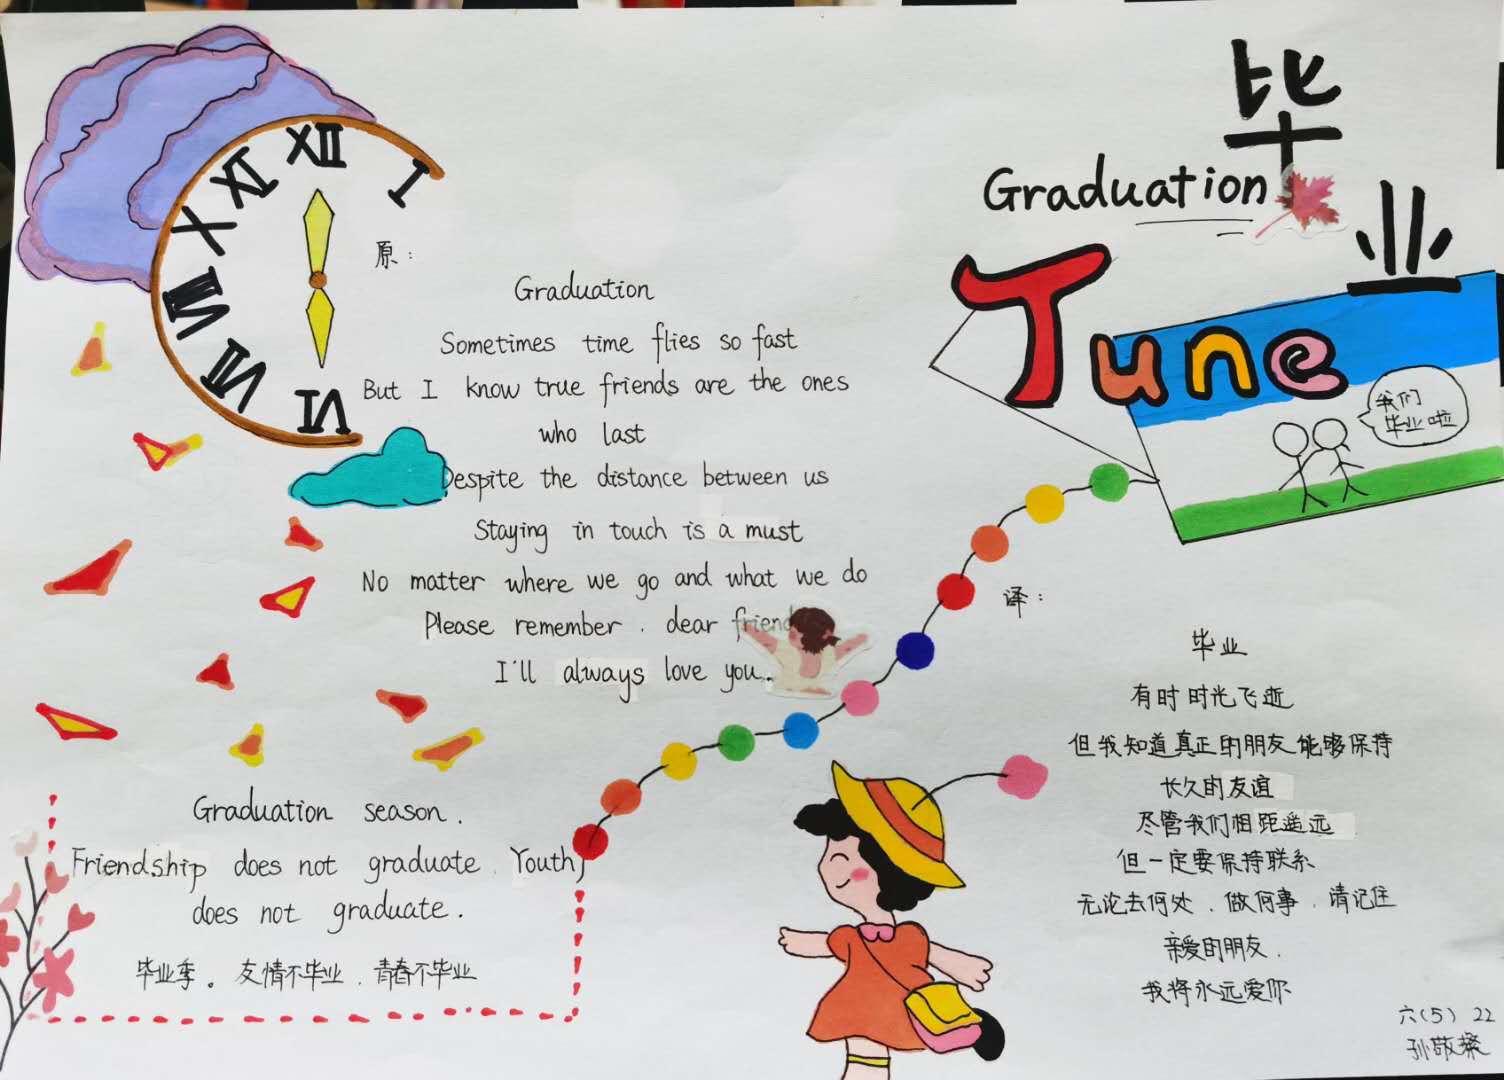 毕业
Graduation
Tune
我们
毕业啦
XII
I
XI
X
VIII
VII
VI
原：
Graduation
Sometimes time flies so fast
But I know true friends are the ones
who last
Despite the distance between us
Staying in touch is a must
No matter where we go and what we do
Please remember . dear friend
I'll always love you..
译：
毕业
有时时光飞逝
但我知道真正的朋友能够保持
长久的友谊
尽管我们相距遥远
但一定要保持联系
无论去何处、做何事、请记住
亲爱的朋友、
我将永远爱你
Graduation season.
Friendship does not graduate. Youth
does not graduate.
毕业季。友情不毕业、青春不毕业
六(5) 22
孙敬